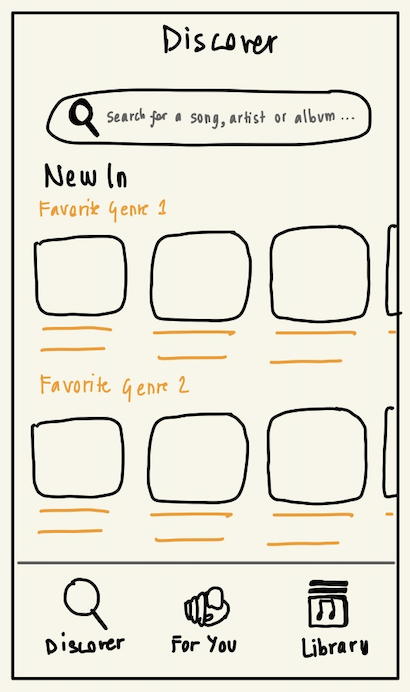 Discover
Search for a song, artist or album ...
New In
Favorite Genre 1
Favorite Genre 2
Discover
For You
Library